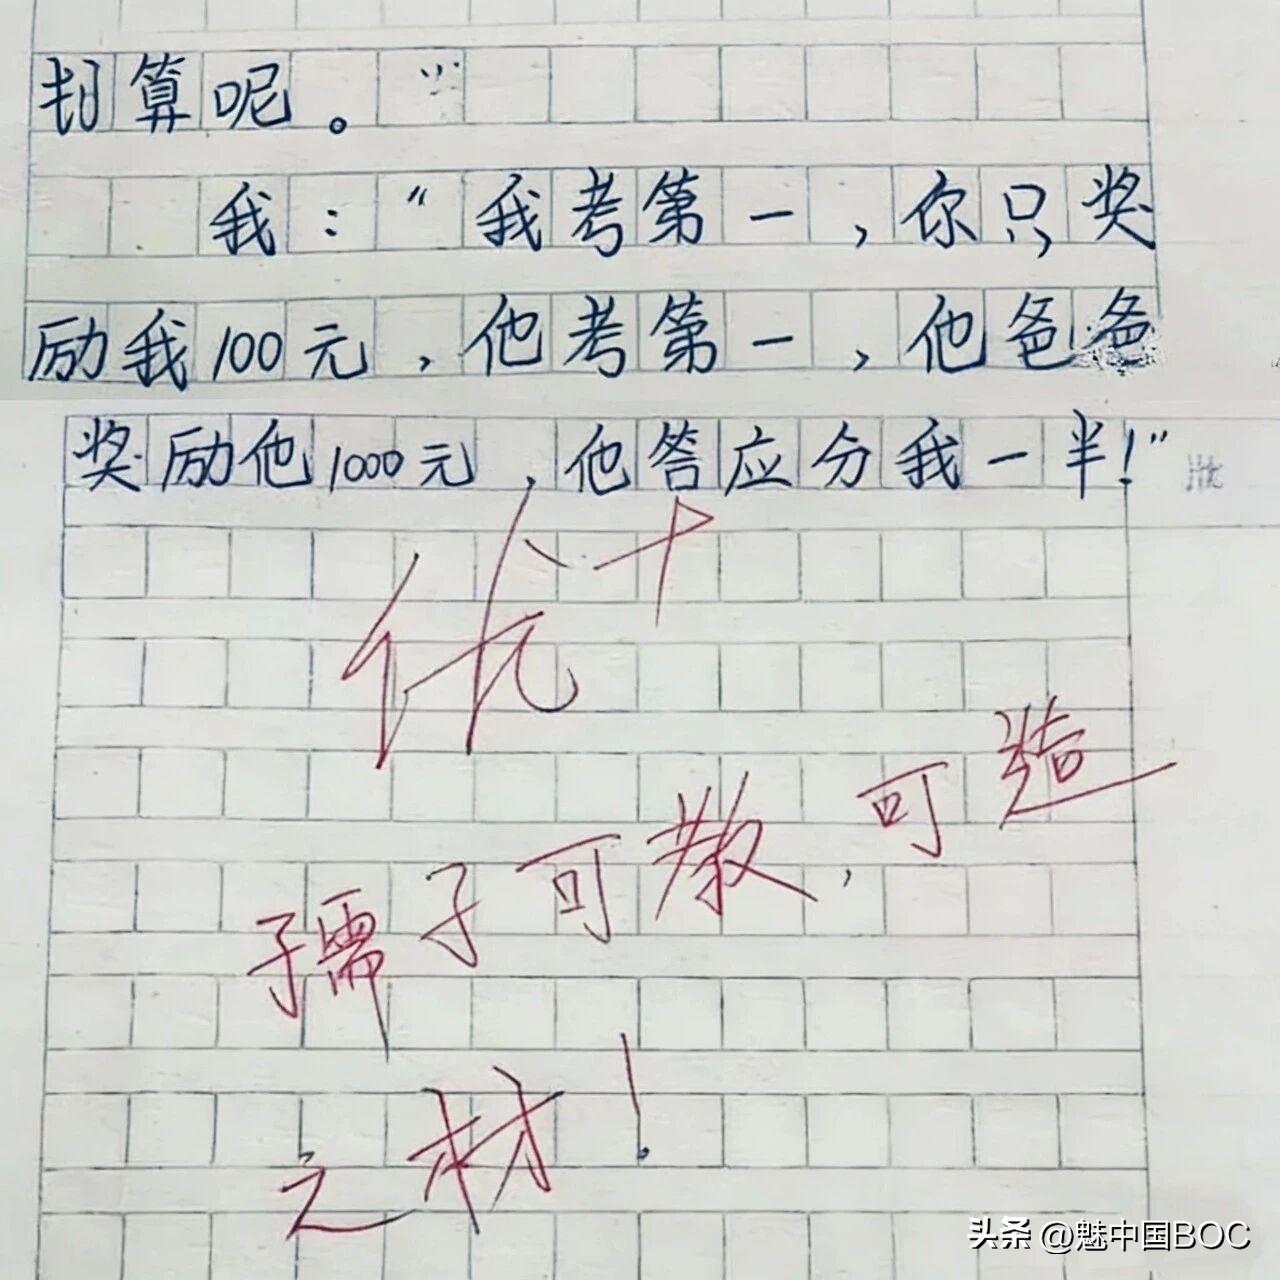 划算呢。”
我：“我考第一，你只奖
励我100元，他考第一，他爸爸
奖励他1000元，他答应分我一半！”
优+
孺子可教，可造
之材！
头条 @魅中国BOC